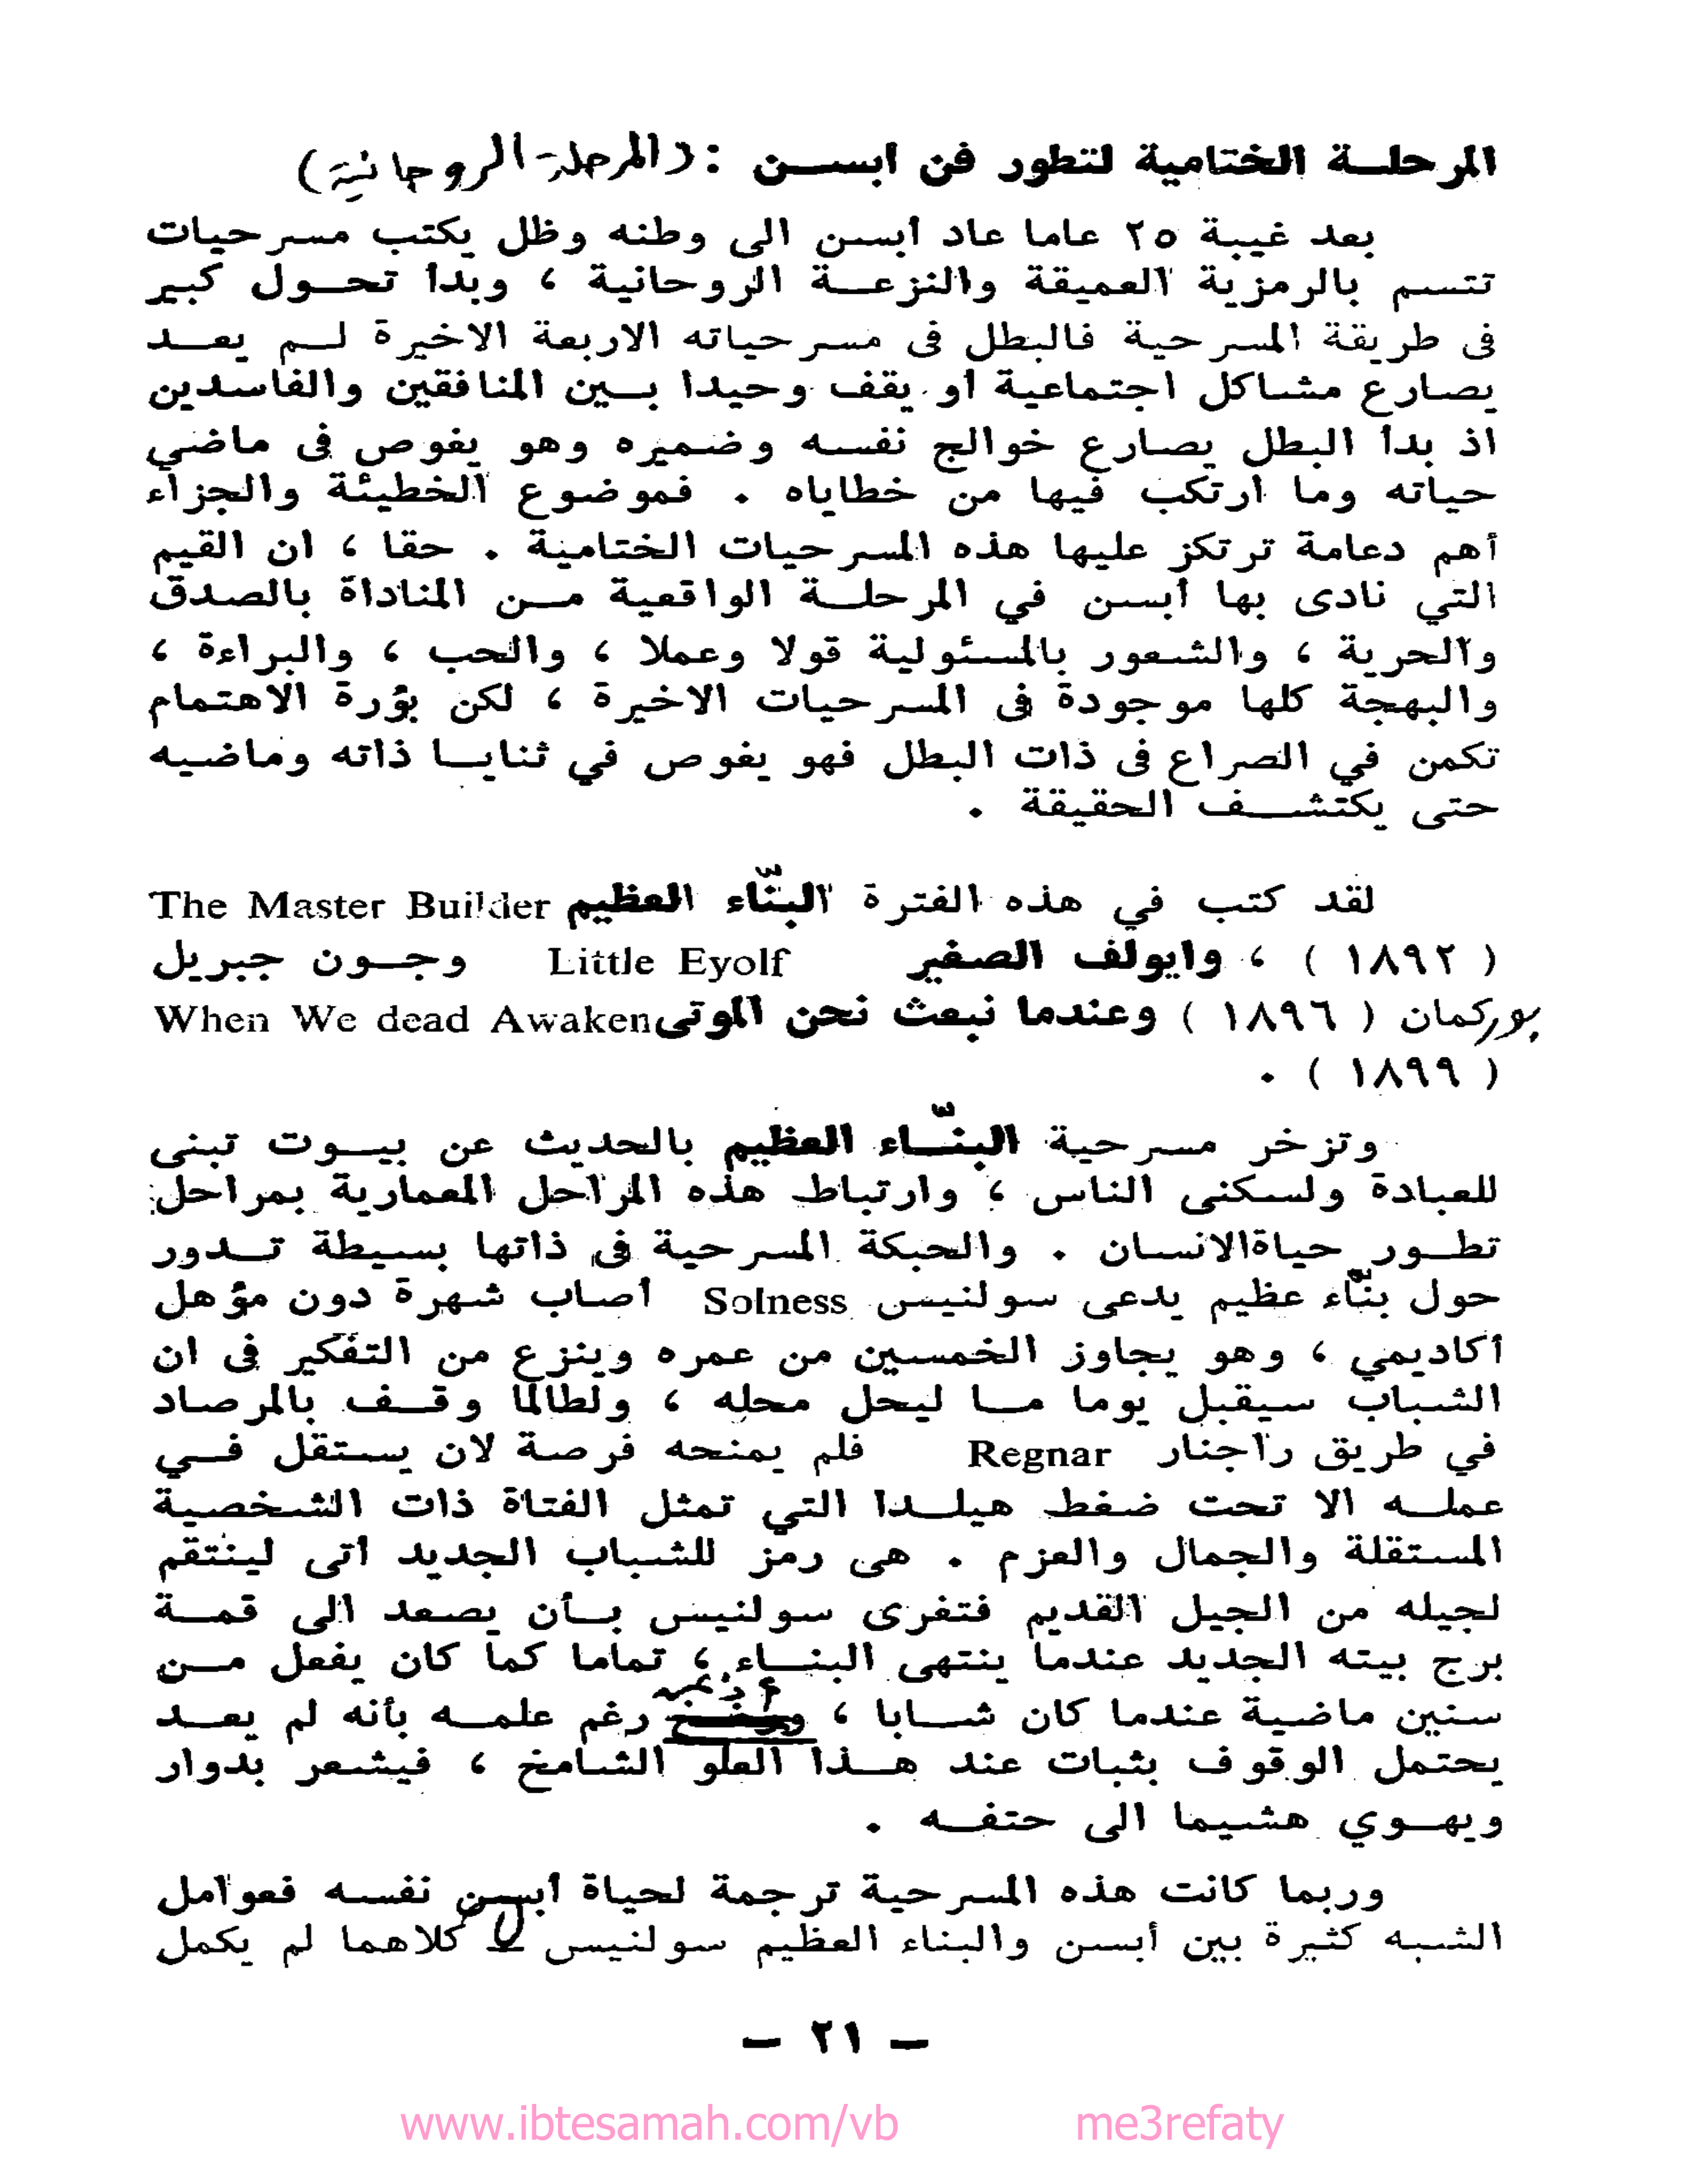 المرحلـة الختامية لتطور فن ابســن : (المرحلة الروحانية)
بعد غيبة ٢٥ عاما عاد أبسن الى وطنه وظل يكتب مسرحيات
تتسم بالرمزية العميقة والنزعـة الروحانية ، وبدأ تحـول كبير
فى طريقة المسرحية فالبطل فى مسرحياته الاربعة الاخيرة لـم يعـد
يصارع مشاكل اجتماعية أو يقف وحيدا بـين المنافقين والفاسدين
اذ بدأ البطل يصارع خوالج نفسه وضميره وهو يغوص فى ماضي
حياته وما ارتكب فيها من خطاياه . فموضوع الخطيئة والجزاء
أهم دعامة ترتكز عليها هذه المسرحيات الختامية . حقا ، ان القيم
التي نادى بها أبسن في المرحلـة الواقعية مـن المناداة بالصدق
والحرية ، والشعور بالمسئولية قولا وعملا ، والحب ، والبراءة ،
والبهجة كلها موجودة فى المسرحيات الاخيرة ، لكن بؤرة الاهتمام
تكمن في الصراع فى ذات البطل فهو يغوص في ثنايـا ذاته وماضيه
حتى يكتشـف الحقيقة .
لقد كتب في هذه الفترة البنّاء العظيم The Master Builder
( ١٨٩٢ ) ، وايولف الصغير Little Eyolf وجـون جبريل
بوركمان ( ١٨٩٦ ) وعندما نبعث نحن الموتى When We dead Awaken
( ١٨٩٩ ) .
وتزخر مسرحية البنّـاء العظيم بالحديث عن بيـوت تبنى
للعبادة ولسكنى الناس ، وارتباط هذه المراحل المعمارية بمراحل
تطـور حياةالانسان . والحبكة المسرحية فى ذاتها بسيطة تـدور
حول بنّاء عظيم يدعى سولنيس Solness أصاب شهرة دون مؤهل
أكاديمي ، وهو يجاوز الخمسين من عمره وينزع من التفكير فى ان
الشباب سيقبل يوما مـا ليحل محله ، ولطالما وقـف بالمرصاد
في طريق راجنار Regnar فلم يمنحه فرصة لان يستقل فـي
عملـه الا تحت ضغط هيلـدا التي تمثل الفتاة ذات الشخصية
المستقلة والجمال والعزم . هى رمز للشباب الجديد أتى لينتقم
لجيله من الجيل القديم فتغرى سولنيس بـأن يصعد الى قمـة
برج بيته الجديد عندما ينتهى البنـاء ، تماما كما كان يفعل مـن
سنين ماضية عندما كان شـابا ، رغم علمـه بأنه لم يعـد
يحتمل الوقوف بثبات عند هـذا العلو الشامخ ، فيشعر بدوار
ويهـوي هشيما الى حتفـه .
وربما كانت هذه المسرحية ترجمة لحياة أبسن نفسه فعوامل
الشبه كثيرة بين أبسن والبناء العظيم سولنيس كلاهما لم يكمل
— ٢١ —
www.ibtesamah.com/vb me3refaty